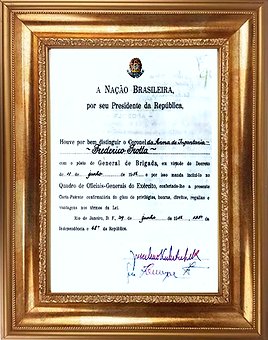 A NAÇÃO BRASILEIRA,
por seu Presidente da República,
Houve por bem distinguir o Coronel da Arma de Infantaria
~ Frederico Trotta ~
com o pôsto de General de Brigada, em virtude do Decreto
de junho de e por isso manda incluí-lo no
Quadro de Oficiais-Generais do Exército, conferindo-lhe a presente
Carta-Patente confirmatória do gôzo de privilégios, honras, direitos, regalias e
vantagens nos têrmos da Lei.
Rio de Janeiro, D. F., de junho de
Independência e 68º da República.